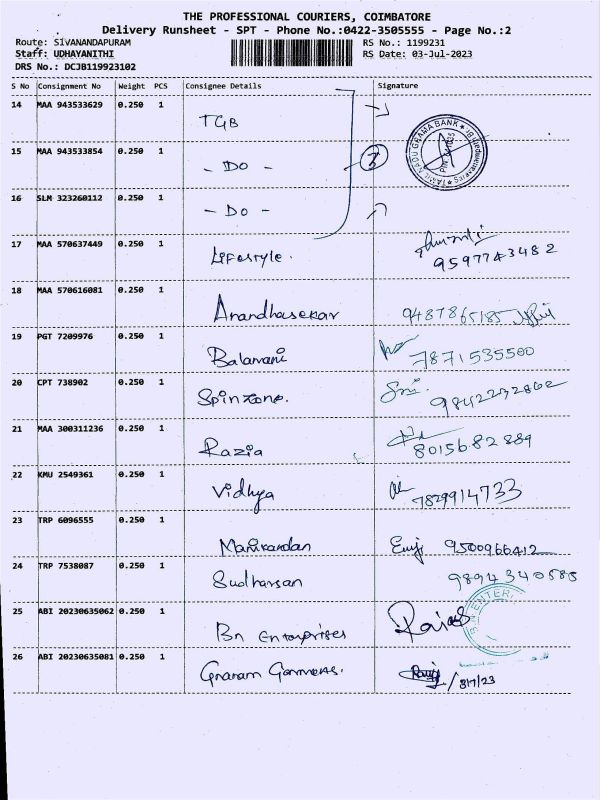 THE PROFESSIONAL COURIERS, COIMBATORE
Delivery Runsheet - SPT - Phone No.:0422-3505555 - Page No.:2
Route: SIVANANDAPURAM RS No.: 1199231
Staff: UDHAYANITHI RS Date: 03-Jul-2023
DRS No.: DCJB119923102
S No Consignment No Weight PCS Consignee Details Signature
14 MAA 943533629 0.250 1 TGB
TAMIL NADU GRAMA BANK
15 MAA 943533854 0.250 1 - DO - 3
16 SLM 323260112 0.250 1 - DO -
17 MAA 570637449 0.250 1 Lifestyle. 9597743482
18 MAA 570616081 0.250 1 Anandhasekar 9487865185
19 PGT 7209976 0.250 1 Balamani 7871535500
20 CPT 738902 0.250 1 Spinzone. Sri. 9842232802
21 MAA 300311236 0.250 1 Razia 8015682889
22 KMU 2549361 0.250 1 Vidhya 7829914733
23 TRP 6096555 0.250 1 Manikandan 9500966412
24 TRP 7538087 0.250 1 Sudharsan 9894340585
25 ABI 20230635062 0.250 1 Bn Enterprises
26 ABI 20230635081 0.250 1 Gnanam Garmens. /8/7/23